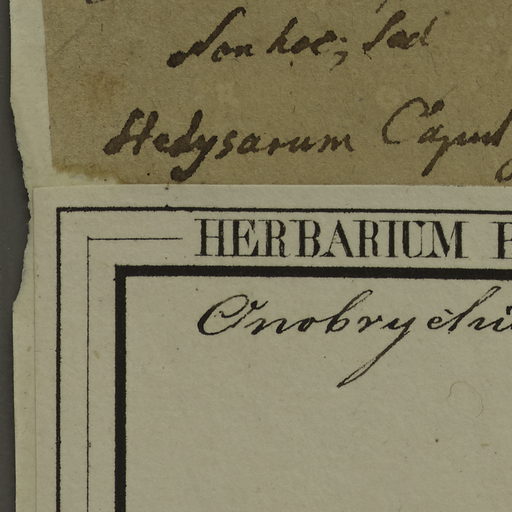 Non hoc; sed
Hedysarum Caput
HERBARIUM
Onobrychis